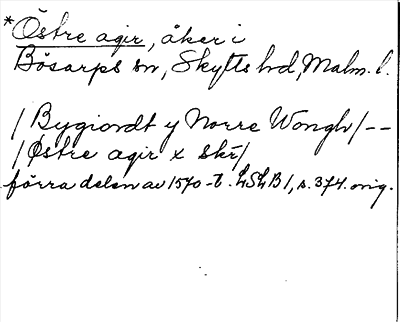 *Östre agir, åker i
Bösarps sn, Skytts hd, Malm. l.
/Bygiordt y Norre Wongh/--
/Østre agir x skr/
förra delen av 1570-t. LSLB1, s. 374. orig.